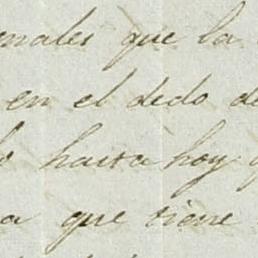 enales que la
en el dedo de
hasta hoy
a que tiene